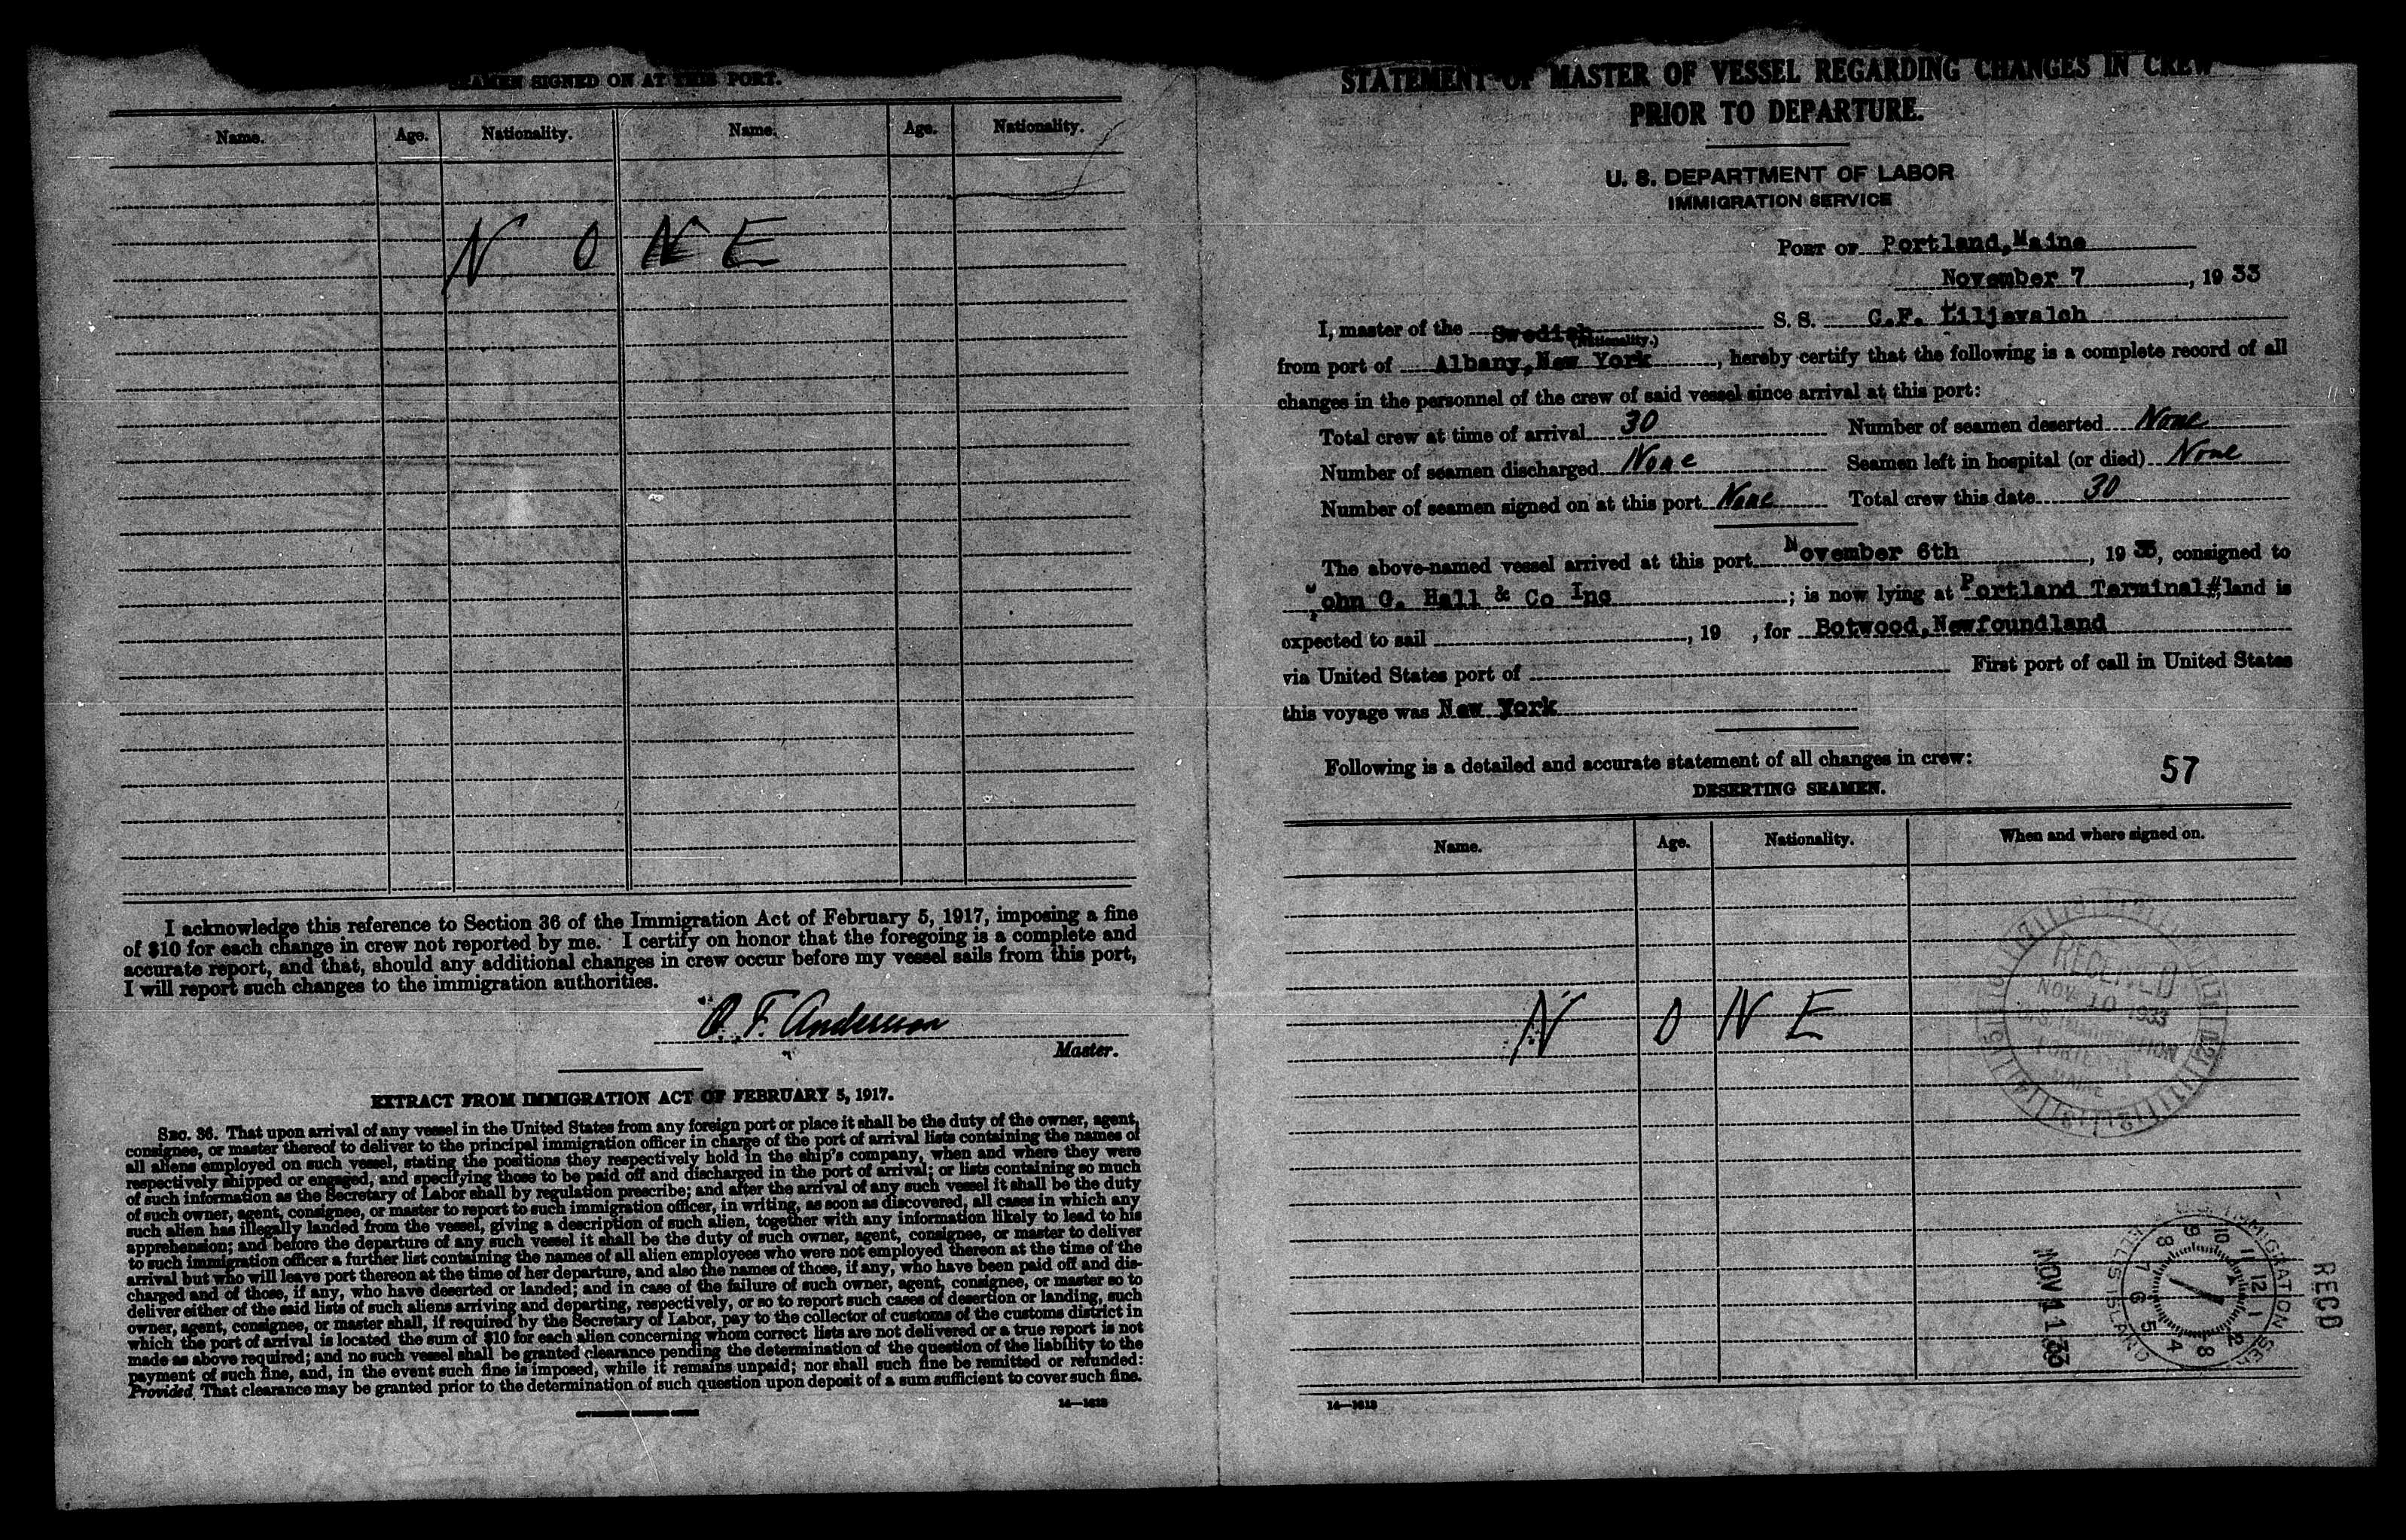 SEAMEN SIGNED ON AT THIS PORT.
Name. Age. Nationality. Name. Age. Nationality.
N O N E
I acknowledge this reference to Section 36 of the Immigration Act of February 5, 1917, imposing a fine
of $10 for each change in crew not reported by me. I certify on honor that the foregoing is a complete and
accurate report, and that, should any additional changes in crew occur before my vessel sails from this port,
I will report such changes to the immigration authorities.
O. F. Anderson
Master.
EXTRACT FROM IMMIGRATION ACT OF FEBRUARY 5, 1917.
SEC. 36. That upon arrival of any vessel in the United States from any foreign port or place it shall be the duty of the owner, agent,
consignee, or master thereof to deliver to the principal immigration officer in charge of the port of arrival lists containing the names of
all aliens employed on such vessel, stating the positions they respectively hold in the ship's company, when and where they were
respectively shipped or engaged, and specifying those to be paid off and discharged in the port of arrival; or lists containing so much
of such information as the Secretary of Labor shall by regulation prescribe; and after the arrival of any such vessel it shall be the duty
of such owner, agent, consignee, or master to report to such immigration officer, in writing, as soon as discovered, all cases in which any
such alien has illegally landed from the vessel, giving a description of such alien, together with any information likely to lead to his
apprehension; and before the departure of any such vessel it shall be the duty of such owner, agent, consignee, or master to deliver
to such immigration officer a further list containing the names of all alien employees who were not employed thereon at the time of the
arrival but who will leave port thereon at the time of her departure, and also the names of those, if any, who have been paid off and dis-
charged and of those, if any, who have deserted or landed; and in case of the failure of such owner, agent, consignee, or master so to
deliver either of the said lists of such aliens arriving and departing, respectively, or so to report such cases of desertion or landing, such
owner, agent, consignee, or master shall, if required by the Secretary of Labor, pay to the collector of customs of the customs district in
which the port of arrival is located the sum of $10 for each alien concerning whom correct lists are not delivered or a true report is not
made as above required; and no such vessel shall be granted clearance pending the determination of the question of the liability to the
payment of such fine, and, in the event such fine is imposed, while it remains unpaid; nor shall such fine be remitted or refunded:
Provided, That clearance may be granted prior to the determination of such question upon deposit of a sum sufficient to cover such fine.
14—1613
STATEMENT OF MASTER OF VESSEL REGARDING CHANGES IN CREW
PRIOR TO DEPARTURE.
U. S. DEPARTMENT OF LABOR
IMMIGRATION SERVICE
PORT OF Portland,Maine
November 7, 1933
I, master of the Swedish S. S. C.F. Liljevalch
(Nationality.)
from port of Albany,New York, hereby certify that the following is a complete record of all
changes in the personnel of the crew of said vessel since arrival at this port:
Total crew at time of arrival 30 Number of seamen deserted None
Number of seamen discharged None Seamen left in hospital (or died) None
Number of seamen signed on at this port None Total crew this date 30
The above-named vessel arrived at this port November 6th, 1933, consigned to
John G. Hall & Co Inc; is now lying at Portland Terminal#1and is
expected to sail , 19 , for Botwood,Newfoundland
via United States port of First port of call in United States
this voyage was New York
Following is a detailed and accurate statement of all changes in crew:
57
DESERTING SEAMEN.
Name. Age. Nationality. When and where signed on.
N O N E
RECEIVED
NOV 10 1933
U.S. IMMIGRATION
PORTLAND
MAINE
RECD
U.S. IMMIGRATION SER
ELLIS ISLAND
12 1 2 3 4 5 6 7 8 9 10 11
NOV 11 33
14—1613